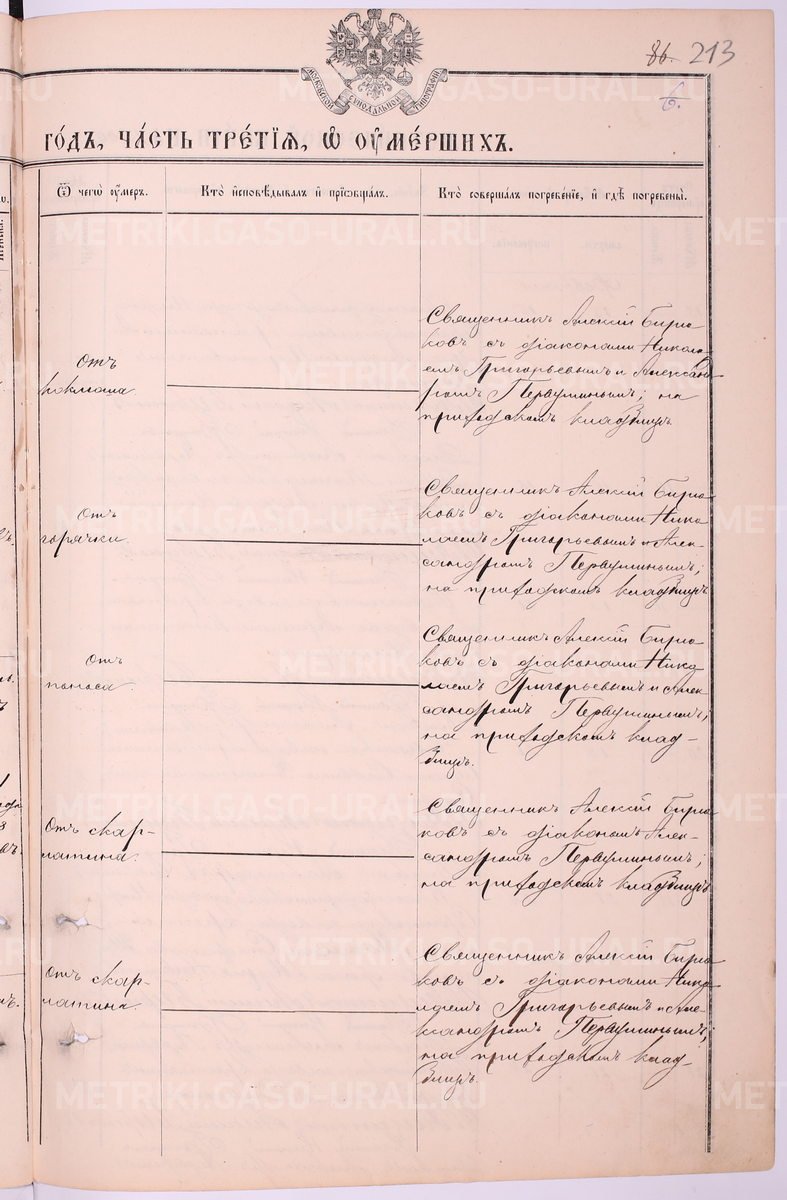 86. 213
6.
МОСКОВСКОЙ СѴНОДАЛЬНОЙ ТИПОГРАФІИ
ГО́ДЪ, ЧА́СТЬ ТРЕ́ТІѦ, Ѽ ОУ҆МЕ́РШИХЪ.
Ѿ чегѡ̀ оу҆́меръ.
Кто̀ и҆сповѣ́дывалъ и҆ прїѡбща́лъ.
Кто̀ соверша́лъ погребе́нїе, и҆ гдѣ̀ погребены̀.
Отъ
коклюша
Священникъ Алексій Бирю-
ковъ съ діаконами Никола-
емъ Григорьевымъ и Александ-
ромъ Первушинымъ; на
приходскомъ кладбищѣ.
Отъ
горячки.
Священникъ Алексій Бирю-
ковъ съ діаконами Нико-
лаемъ Григорьевымъ и Алек-
сандромъ Первушинымъ;
на приходскомъ кладбищѣ
Отъ
поноса.
Священникъ Алексій Бирю-
ковъ съ діаконами Нико-
лаемъ Григорьевымъ и Алек-
сандромъ Первушинымъ;
на приходскомъ клад-
бищѣ.
Отъ скар-
латина.
Священникъ Алексій Бирю-
ковъ съ діакономъ Алек-
сандромъ Первушинымъ;
на приходскомъ кладбищѣ
Отъ скар-
латина.
Священникъ Алексій Бирю-
ковъ съ діаконами Нико-
лаемъ Григорьевымъ и Але-
ксандромъ Первушинымъ;
на приходскомъ клад-
бищѣ.
METRIKI.GASO-URAL.RU